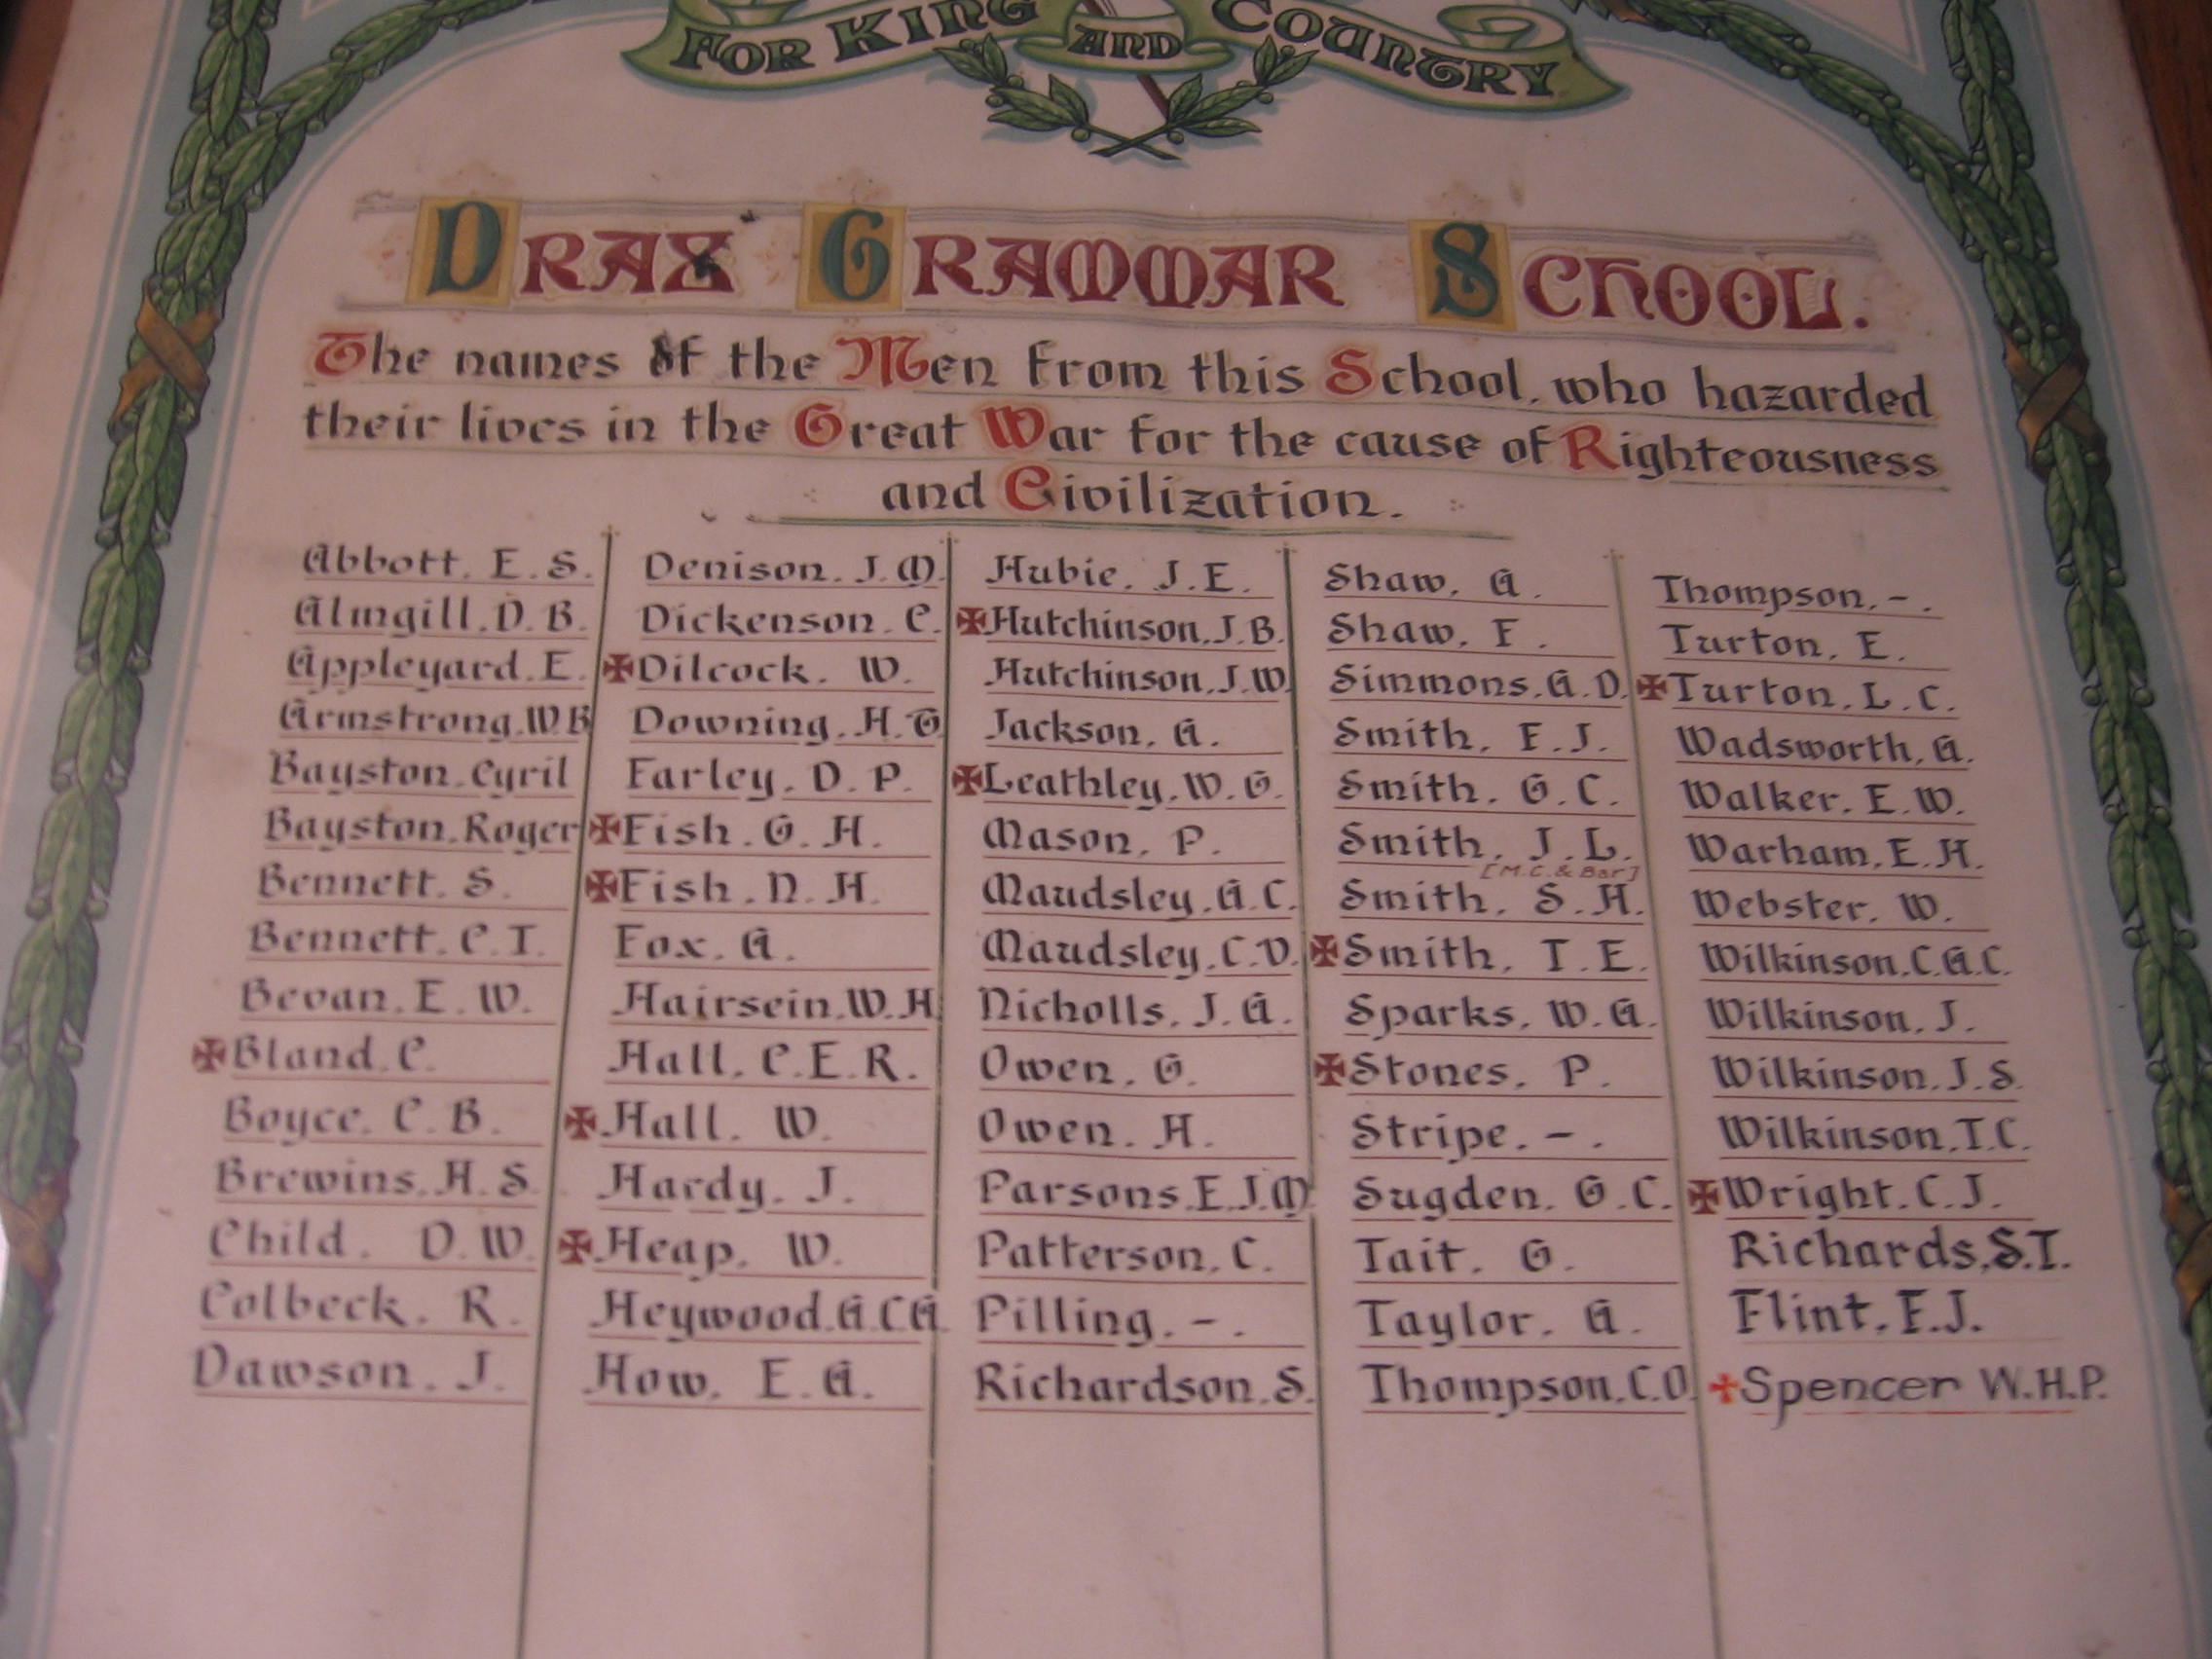 FOR KING AND COUNTRY
DRAX GRAMMAR SCHOOL.
The names of the Men from this School, who hazarded
their lives in the Great War for the cause of Righteousness
and Civilization.
Abbott. E. S.
Almgill. D. B.
Appleyard. E.
Armstrong. W. B
Bayston. Cyril
Bayston. Roger
Bennett. S.
Bennett. C. T.
Bevan. E. W.
✠ Bland. C.
Boyce. C. B.
Brewins. H. S.
Child. O. W.
Colbeck. R.
Dawson. J.
Denison. J. M.
Dickenson. C.
✠ Dilcock. W.
Downing. H. T
Farley. D. P.
✠ Fish. G. H.
✠ Fish. N. H.
Fox. A.
Hairsein. W. H
Hall. C. E. R.
✠ Hall. W.
Hardy. J.
✠ Heap. W.
Heywood. A. C. A
How. E. A.
Hubie. J. E.
✠ Hutchinson. J. B.
Hutchinson. J. W.
Jackson. A.
✠ Leathley. W. G.
Mason. P.
Maudsley. A. C.
Maudsley. C. V.
Nicholls. J. A.
Owen. G.
Owen. H.
Parsons. E. J. M
Patterson. C.
Pilling. - .
Richardson. S.
Shaw. A.
Shaw. F.
Simmons. A. D.
Smith. F. J.
Smith. G. C.
Smith. J. L.
[M.C. & Bar]
Smith. S. H.
✠ Smith. T. E.
Sparks. W. A.
✠ Stones. P.
Stripe. - .
Sugden. G. C.
Tait. G.
Taylor. A.
Thompson. C. O.
Thompson. - .
Turton. E.
✠ Turton. L. C.
Wadsworth. A.
Walker. E. W.
Warham. E. H.
Webster. W.
Wilkinson. C. A. C.
Wilkinson. J.
Wilkinson. J. S.
Wilkinson. T. C.
✠ Wright. C. J.
Richards. S. T.
Flint. F. J.
✠ Spencer W. H. P.